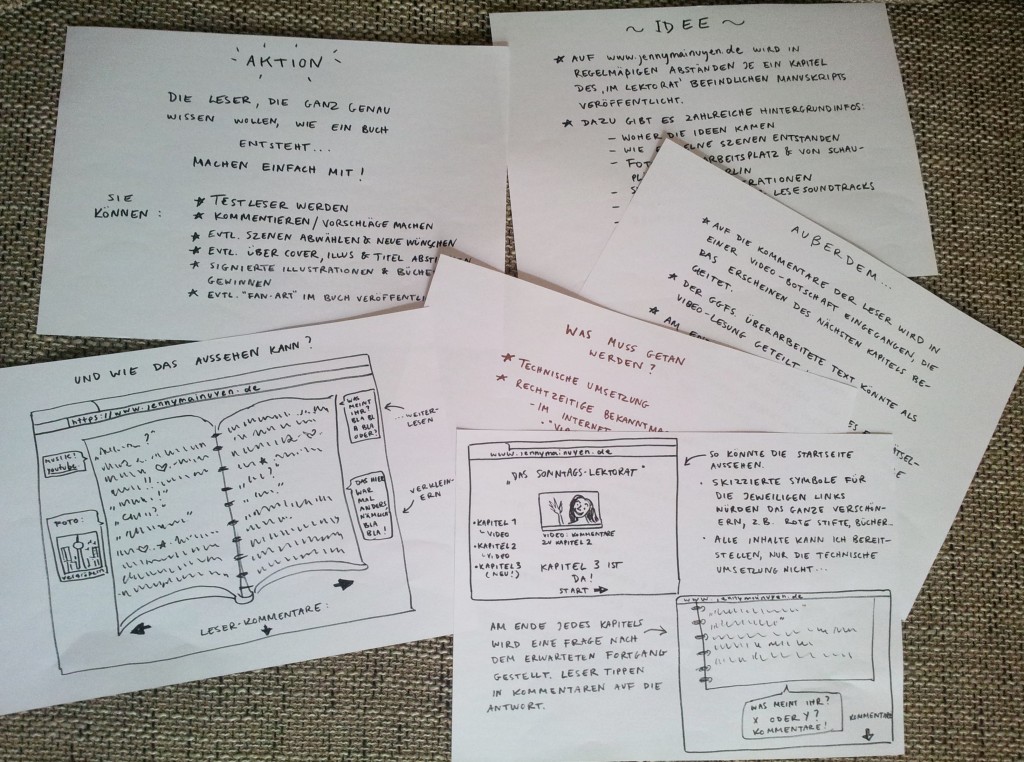 AKTION
DIE LESER, DIE GANZ GENAU
WISSEN WOLLEN, WIE EIN BUCH
ENTSTEHT...
MACHEN EINFACH MIT!
SIE
KÖNNEN:
★ TESTLESER WERDEN
★ KOMMENTIEREN/VORSCHLÄGE MACHEN
★ EVTL. SZENEN ABWÄHLEN & NEUE WÜNSCHEN
★ EVTL. ÜBER COVER, ILLUS & TITEL
★ SIGNIERTE ILLUSTRATIONEN &
GEWINNEN
★ EVTL. "FAN-ART" IM BUCH
~ IDEE ~
★ AUF www.jennymainuyen.de WIRD IN
REGELMÄßIGEN ABSTÄNDEN JE EIN KAPITEL
DES 'IM LEKTORAT' BEFINDLICHEN MANUSKRIPTS
VERÖFFENTLICHT.
★ DAZU GIBT ES ZAHLREICHE HINTERGRUNDINFOS:
- WOHER DIE IDEEN KAMEN
- WIE SZENEN ENTSTANDEN
ARBEITSPLATZ & VON SCHAU-
LESESOUNDTRACKS
AUßERDEM...
★ AUF DIE KOMMENTARE DER LESER WIRD IN
EINER VIDEO-BOTSCHAFT EINGEGANGEN, DIE
DAS ERSCHEINEN DES NÄCHSTEN KAPITELS BE-
GLEITET.
★ DER GGFS. ÜBERARBEITETE TEXT KÖNNTE ALS
VIDEO-LESUNG GETEILT
★ AM
WAS MUSS GETAN
WERDEN?
★ TECHNISCHE UMSETZUNG
★ RECHTZEITIGE
- IM INTERNET
UND WIE DAS AUSSEHEN KANN?
https://www.jennymainuyen.de
MUSIK!
youtube
FOTO:
vergrößern
WAS
MEINT
IHR?
BLA B
A BLA
ODER?
...WEITER-
LESEN
DAS HIER
WAR
MAL
ANDERS,
NÄMLICH
BLA
BLA!
VERKLEIN-
ERN
LESER-KOMMENTARE:
www.jennymainuyen.de
„DAS SONNTAGS-LEKTORAT"
• KAPITEL 1
VIDEO
• KAPITEL 2
VIDEO
• KAPITEL 3
(NEU!)
VIDEO: KOMMENTARE
ZU KAPITEL 2
KAPITEL 3 IST
DA!
START
SO KÖNNTE DIE STARTSEITE
AUSSEHEN.
• SKIZZIERTE SYMBOLE FÜR
DIE JEWEILIGEN LINKS
WÜRDEN DAS GANZE VERSCHÖN-
ERN, Z.B. ROTE STIFTE, BÜCHER..
• ALLE INHALTE KANN ICH BEREIT-
STELLEN, NUR DIE TECHNISCHE
UMSETZUNG NICHT...
AM ENDE JEDES KAPITELS
WIRD EINE FRAGE NACH
DEM ERWARTETEN FORTGANG
GESTELLT. LESER TIPPEN
IN KOMMENTAREN AUF DIE
ANTWORT.
www.jennymainuyen.de
WAS MEINT IHR?
X ODER Y?
KOMMENTARE!
KOMMENTARE